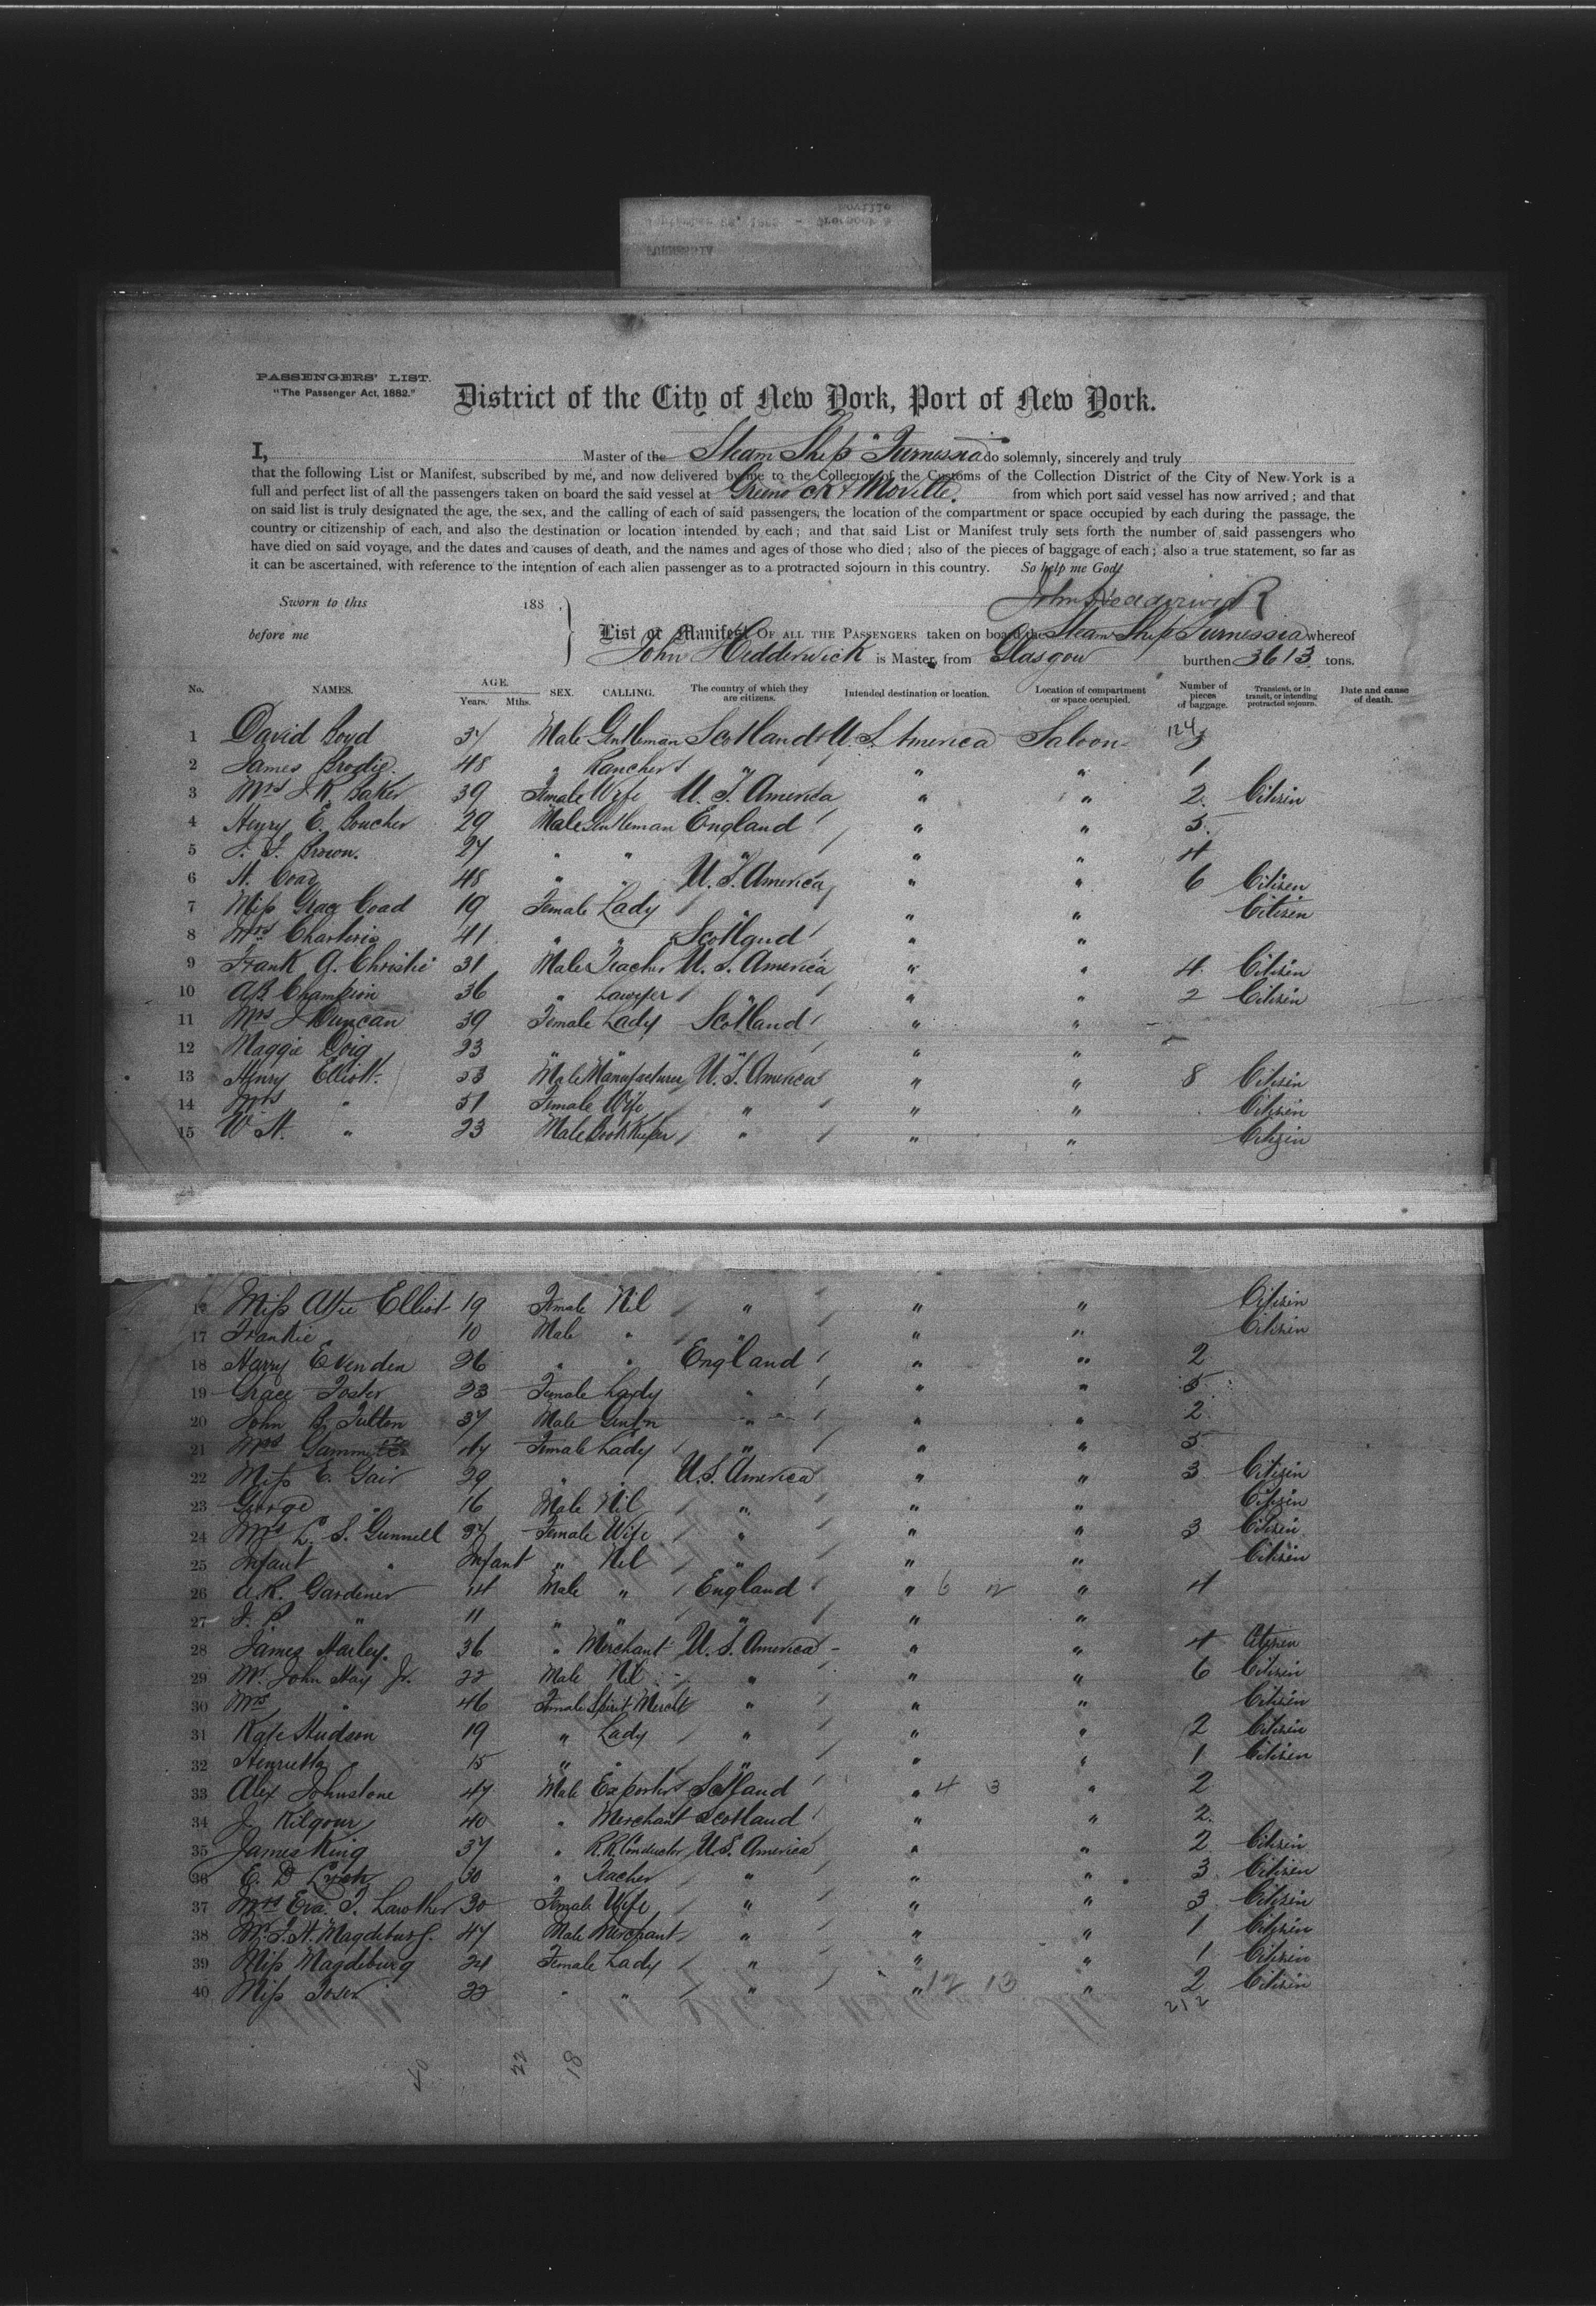 PASSENGERS' LIST.
"The Passenger Act, 1882."
District of the City of New York, Port of New York.
I, Master of the Steam Ship "Furnessia" do solemnly, sincerely and truly
that the following List or Manifest, subscribed by me, and now delivered by me to the Collector of the Customs of the Collection District of the City of New York is a
full and perfect list of all the passengers taken on board the said vessel at Greenock & Moville. from which port said vessel has now arrived; and that
on said list is truly designated the age, the sex, and the calling of each of said passengers, the location of the compartment or space occupied by each during the passage, the
country or citizenship of each, and also the destination or location intended by each; and that said List or Manifest truly sets forth the number of said passengers who
have died on said voyage, and the dates and causes of death, and the names and ages of those who died; also of the pieces of baggage of each; also a true statement, so far as
it can be ascertained, with reference to the intention of each alien passenger as to a protracted sojourn in this country. So help me God.
John Hedderwick
Sworn to this 188
before me
List or Manifest OF ALL THE PASSENGERS taken on board the Steam Ship Furnessia whereof
John Hedderwick is Master, from Glasgow burthen 3613 tons.
No. NAMES. AGE. Years. Mths. SEX. CALLING. The country of which they are citizens. Intended destination or location. Location of compartment or space occupied. Number of pieces of baggage. Transient, or in transit, or intending protracted sojourn. Date and cause of death.
124
1 David Boyd 37 Male Gentleman Scotland U. S. America Saloon
2 James Brodie. 48 " Rancher " " " 1
3 Mrs J K Baker 39 Female Wife U. S. America " " 2. Citizen
4 Henry E. Boucher 29 Male Gentleman England " " 5.
5 Brown. 27 " " " " " 4
6 H. Coad 48 " " U. S. America " " 6 Citizen
7 Miss Grace Coad 19 Female Lady " " " Citizen
8 Mrs Charteris 41 " " Scotland " "
9 Frank A. Christie 31 Male Teacher U. S. America " " 4 Citizen
10 A B Champion 36 " Lawyer " " " 2 Citizen
11 Mrs J Duncan 39 Female Lady Scotland " "
12 Maggie Doig 23 " " " " "
13 Henry Elliott. 53 Male Manufacturer U. S. America " " 8 Citizen
14 Mrs " 51 Female Wife " " " Citizen
15 W H. " 23 Male Book Keeper " " " Citizen
16 Miss Elliot 19 Female Nil " " " Citizen
17 Frankie 10 Male " " " " Citizen
18 Harry Evenden 26 " " England " " 2
19 Grace Foster 23 Female Lady " " " 5
20 John B. Fulton 37 Male Gentn " " " 2
21 Mrs 47 Female Lady " " " 5
22 Miss E. Gair 29 " " U.S. America " " 3 Citizen
23 George " 16 Male Nil " " " Citizen
24 Mrs L. S. Gunnell 37 Female Wife " " " 3 Citizen
25 Infant " Infant " Nil " " " Citizen
26 A.R. Gardiner 14 Male " England " 6 2 " 4
27 " 11 " " " " "
28 James Harley. 36 " Merchant U. S. America " " 4 Citizen
29 Mr. John Hay Jr. 22 Male Nil " " " 6 Citizen
30 Mrs " 46 Female Spirit Mercht " " " Citizen
31 Kate Hudson 19 " Lady " " " 2 Citizen
32 Henrietta " 15 " " " " " 1 Citizen
33 Alex Johnstone 47 Male Exporter Scotland " 4 3 " 2
34 J. Kilgour 40 " Merchant Scotland " " 2.
35 James King 37 " R.R. Conductor U.S. America " " 2 Citizen
36 E. D 30 " Teacher " " " 3 Citizen
37 Mrs Eva. J. Lawther 30 Female Wife " " " 3 Citizen
38 Mr. F. H. Magdeburg. 47 Male Merchant " " " 1 Citizen
39 Miss Magdeburg 24 Female Lady " " " 1 Citizen
40 Miss 23 " " " " 12 13 " 2 Citizen
212
40 22 18